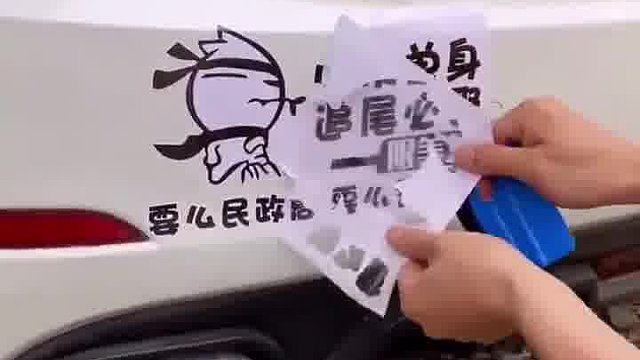 单身
追尾必
要么民政局 要么